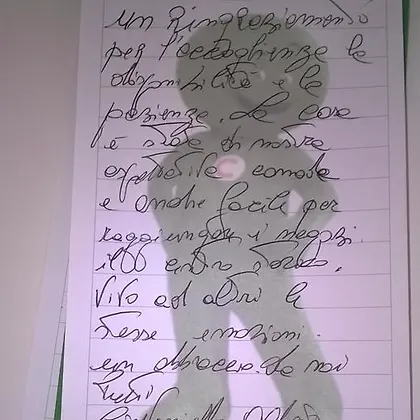 un Ringraziamento
per l'accoglienza la
disponibilità e la
pazienza. La casa
è stata di nostra
aspettative comoda
e anche facile per
raggiungere i negozi.
il centro storico.
Vivo ad altri le
stesse emozioni.
un abbraccio. da noi
tutti